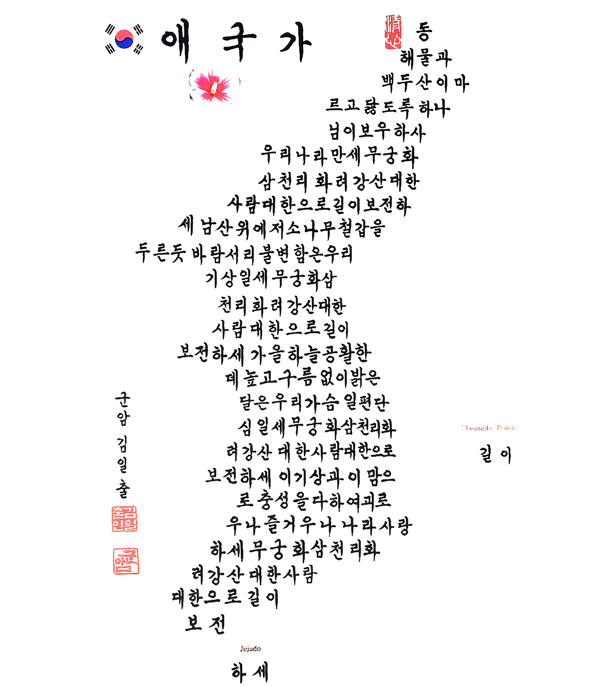 애국가
동
해물과
백두산이마
르고 닳도록 하나
님이보우하사
우리나라만세무궁화
삼천리 화려강산대한
사람대한으로길이보전하
세 남산위에저소나무철갑을
두른듯 바람서리불변함은우리
기상일세무궁화삼
천리화려강산대한
사람대한으로길이
보전하세 가을하늘공활한
데높고구름없이밝은
달은우리가슴 일편단
심일세무궁화삼천리화
려강산 대한사람대한으로
길이
보전하세 이기상과 이 맘으
로 충성을다하여괴로
우나즐거우나 나라사랑
하세무궁화삼천리화
려강산대한사람
대한으로길이
보 전
Jejudo
하 세
군암 김일출